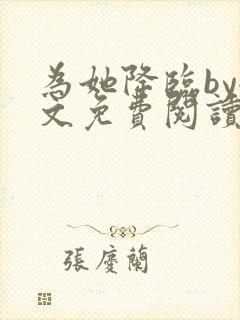 為她降臨by
文免費閱讀
張慶蘭